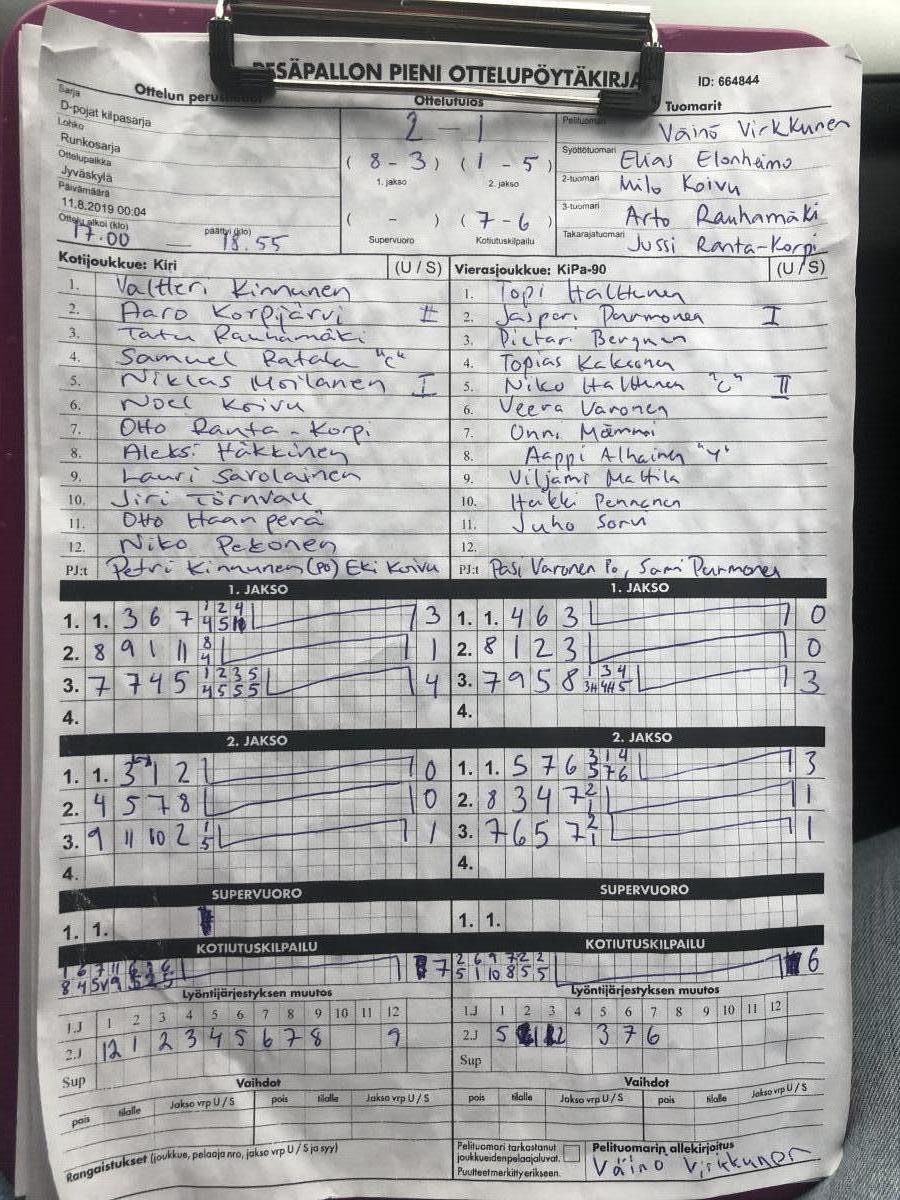 PESÄPALLON PIENI OTTELUPÖYTÄKIRJA
ID: 664844
Sarja
Ottelun
D-pojat kilpasarja
Lohko
Runkosarja
Ottelupaikka
Jyväskylä
Päivämäärä
11.8.2019 00:04
Ottelu alkoi (klo) päättyi (klo)
17.00 18.55
Ottelutulos
2 - 1
( 8 - 3 ) ( 1 - 5 )
1. jakso 2. jakso
( - ) ( 7 - 6 )
Supervuoro Kotiutuskilpailu
Tuomarit
Pelituomari Väinö Virkkunen
Syöttötuomari Elias Elonheimo
2-tuomari Milo Koivu
3-tuomari Arto Rauhamäki
Takarajatuomari Jussi Ranta-Korpi
Kotijoukkue: Kiri (U / S)
1. Valtteri Kinnunen
2. Aaro Korpijärvi II
3. Tatu Rauhamäki
4. Samuel Ratala "C"
5. Niklas Moilanen I
6. Noel Koivu
7. Otto Ranta-Korpi
8. Aleksi Häkkinen
9. Lauri Savolainen
10. Jiri Törnvall
11. Otto Haanperä
12. Niko Pekonen
PJ:t Petri Kinnunen (PO) Eki Koivu
Vierasjoukkue: KiPa-90 (U / S)
1. Topi Halttunen
2. Jaspari Purmonen I
3. Pietari Bergman
4. Topias Kakkonen
5. Niko Halttunen "C" II
6. Veera Varonen
7. Onni
8. Aappi Alhainen "Y"
9. Viljami Mattila
10. Heikki Pennanen
11. Juho
12.
PJ:t Pasi Varonen Po, Sami Purmonen
1. JAKSO
1. 1. 3 6 7 3
2. 8 9 1 11 8 4 1
3. 7 7 4 5 1 2 3 5 4 5 5 5 4
4.
1. JAKSO
1. 1. 4 6 3 0
2. 8 1 2 3 0
3. 7 9 5 8 3
4.
2. JAKSO
1. 1. 3 1 2 0
2. 4 5 7 8 0
3. 9 11 10 2 1 5 1
4.
2. JAKSO
1. 1. 5 7 6 3 1 4 5 7 6 3
2. 8 3 4 7 2 1 1
3. 7 6 5 7 2 1 1
4.
SUPERVUORO
1. 1.
SUPERVUORO
1. 1.
KOTIUTUSKILPAILU
7
KOTIUTUSKILPAILU
2 6 9 7 2 2
5 1 10 8 5 5
6
Lyöntijärjestyksen muutos
1.J 1 2 3 4 5 6 7 8 9 10 11 12
2.J 12 1 2 3 4 5 6 7 8 9
Sup
Lyöntijärjestyksen muutos
1.J 1 2 3 4 5 6 7 8 9 10 11 12
2.J 5 3 7 6
Sup
Vaihdot
pois tilalle Jakso vrp U / S pois tilalle Jakso vrp U / S
Vaihdot
pois tilalle Jakso vrp U / S pois tilalle Jakso vrp U / S
Rangaistukset (joukkue, pelaaja nro, jakso vrp U / S ja syy)
Pelituomari tarkastanut
joukkueiden pelaajaluvat.
Puutteet merkitty erikseen.
Pelituomarin allekirjoitus
Väinö Virkkunen